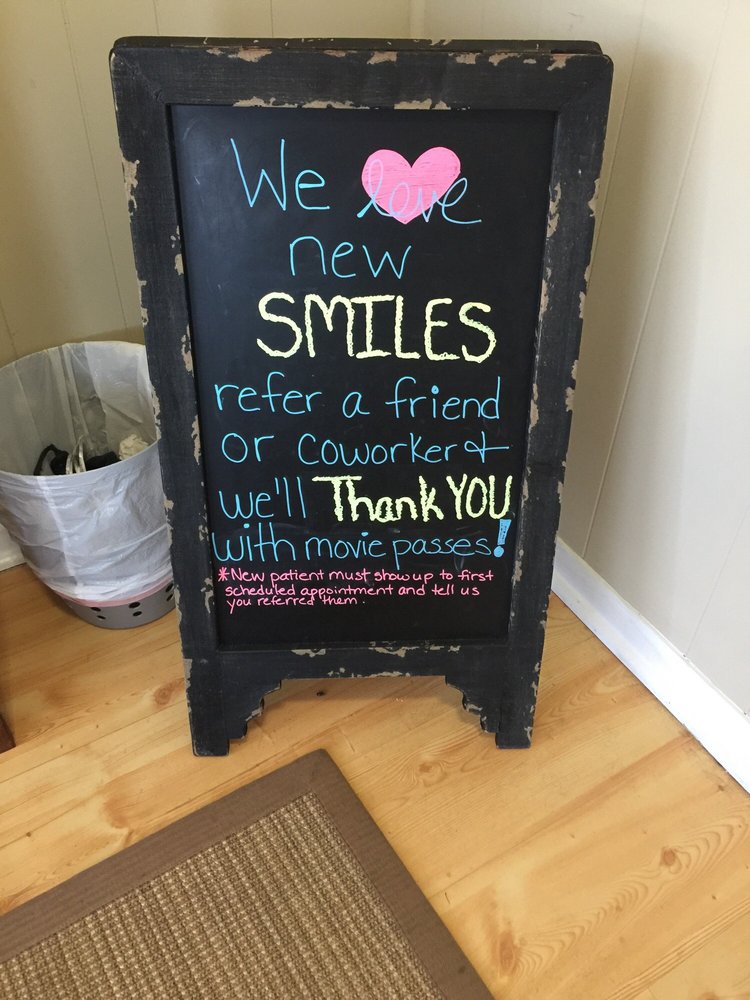 We love
new
SMILES
refer a friend
or coworker &
we'll Thank YOU
with movie passes!
*New patient must show up to first
scheduled appointment and tell us
you referred them.